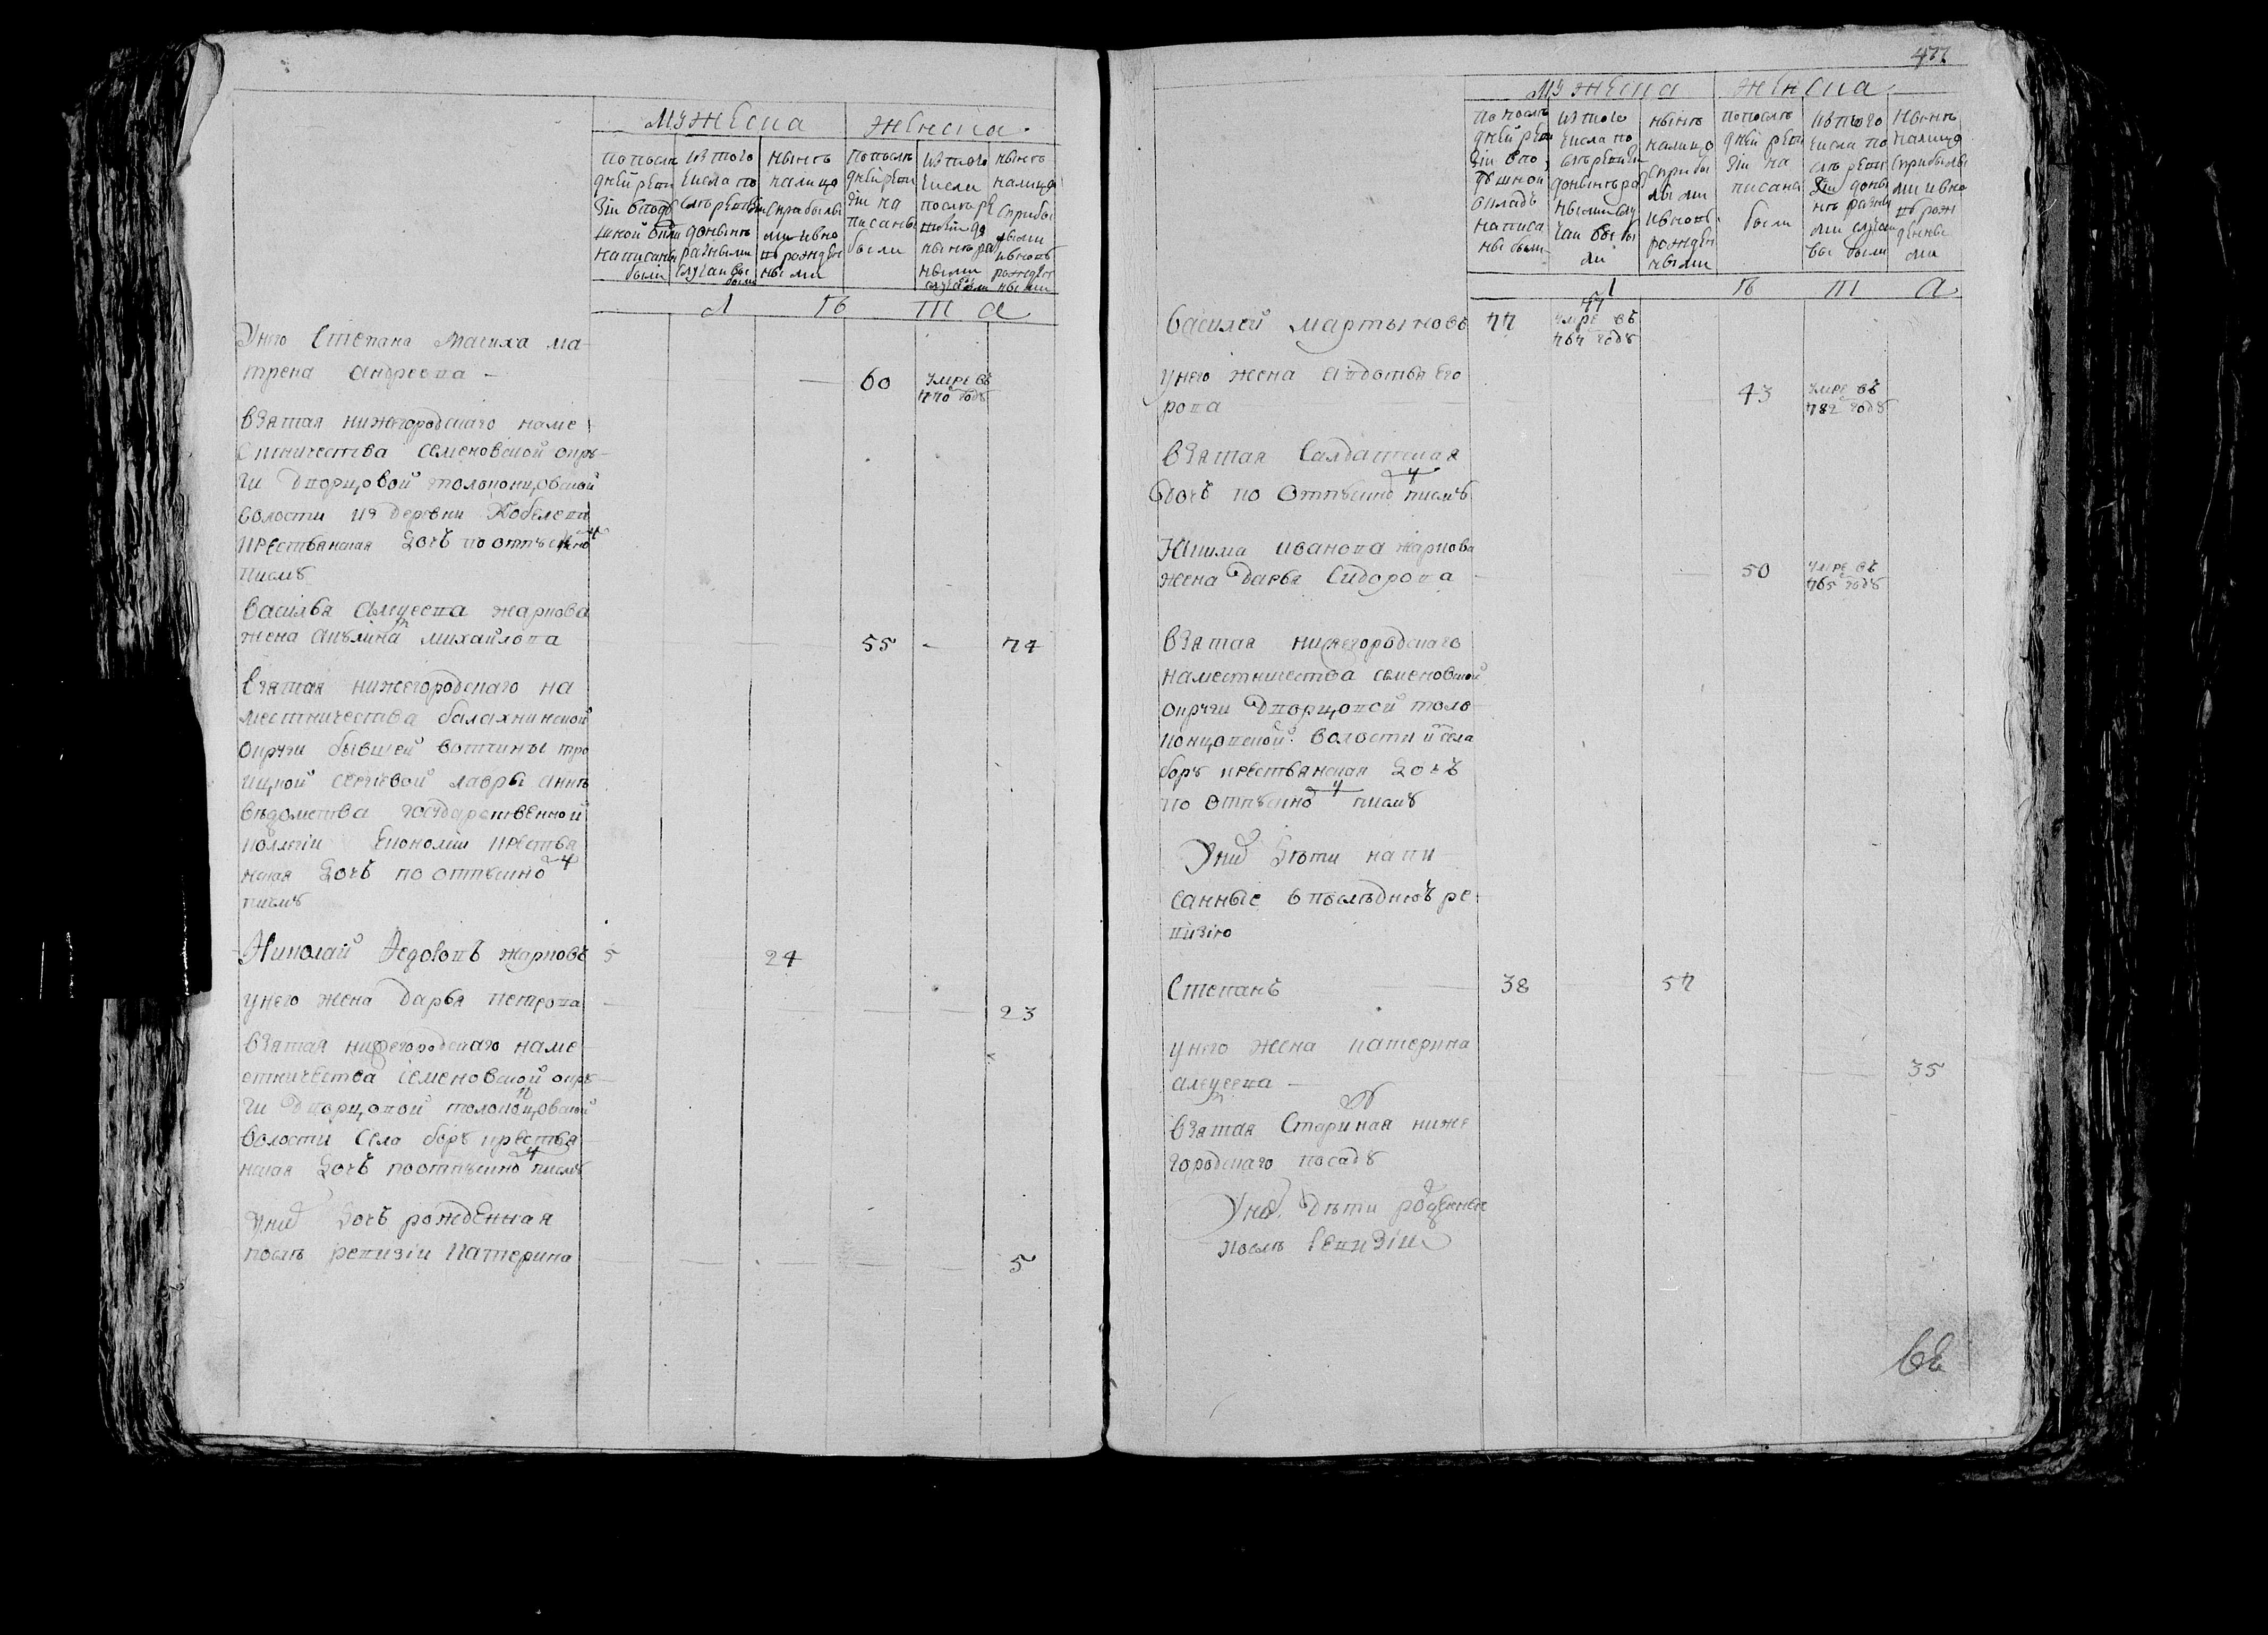 мужеска
женска
по послѣ
дней реви
зіи в поду
шной окла
написаны
были
из того
числа по
слѣ ревизіи
до нынѣ
разными
случаи вы
были
нынѣ
на лицо
с прибылы
ми и вно
въ рожден
ными
по послѣ
дней реви
зіи на
писаны
были
из того
числа
послѣ ре
визіи до
нынѣ раз
ными
случаи
нынѣ
на лицо
с прибы
лыми
и вновь
рожден
ными
л ѣ т а
у него Степана мачиха ма
трена андреева - 60 умре въ
770 годѣ
взятая нижегородскаго наме
стничества семеновской окру
ги дворцовой толоконцовской
волости из деревни Кобелева
крестьянская дочь по отпускно
писму
василья алексеева жаркова
жена акулина михайлова 55 - 74
взятая нижегородскаго на
местничества балахнинской
округи бывшей вотчины тро
ицкой сергиевой лавры а нынѣ
вѣдомства государственной
коллегіи економіи крестья
нская дочь по отпускно
писму
Николай Федоровъ жарковъ 5 24
у него жена дарья петрова 23
взятая нижегородскаго наме
стничества семеновской окру
ги дворцовой толоконцовской
волости села боръ крестья
нская дочь по отпускно писму
У них дочь рожденная
послѣ ревизіи катерина 5
477
мужеска
женска
по послѣ
дней реви
зіи в по
душной
окладъ
написа
ны были
из того
числа по
слѣ ревизіи
до нынѣ раз
ными слу
чаи выбы
ли
нынѣ
на лицо
с прибы
лыми
и вновь
рожден
ными
по послѣ
дней реви
зіи на
писаны
были
из того
числа по
слѣ реви
зіи до ны
нѣ разны
ми случаи
вы были
нынѣ
на лицо
с прибылы
ми и вно
въ рож
денны
ми
л ѣ т а
василей мартыновъ 77 умре въ
767 годѣ
у него жена авдотья его
рова 43 умре въ
782 годѣ
взятая салдатская
дочь по отпускно писму
Якима иванова жаркова
жена дарья сидорова - 50 умре въ
765 годѣ
взятая нижегородскаго
наместничества семеновской
округи дворцовой толо
концовской волости и села
боръ крестьянская дочь
по отпускно писму
У них дѣти напи
санные в послѣднюю ре
визію
Степанъ 38 57
у него жена катерина
алексеева 35
взятая Старинная ниже
городскаго посаду
У них дѣти рожденные
послѣ ревизіи